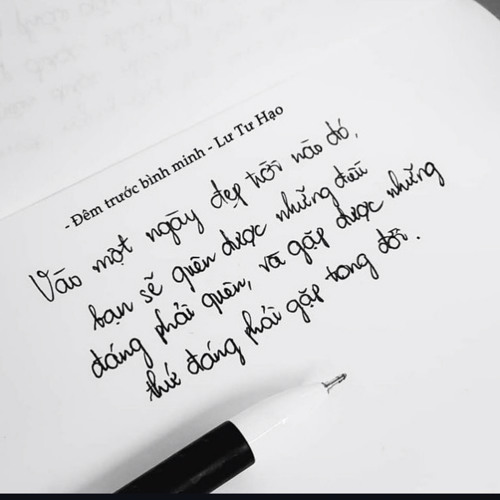 - Đêm trước bình minh - Lư Tư Hạo
Vào một ngày đẹp trời nào đó,
bạn sẽ quên được những điều
đáng phải quên, và gặp được những
thứ đáng phải gặp trong đời.